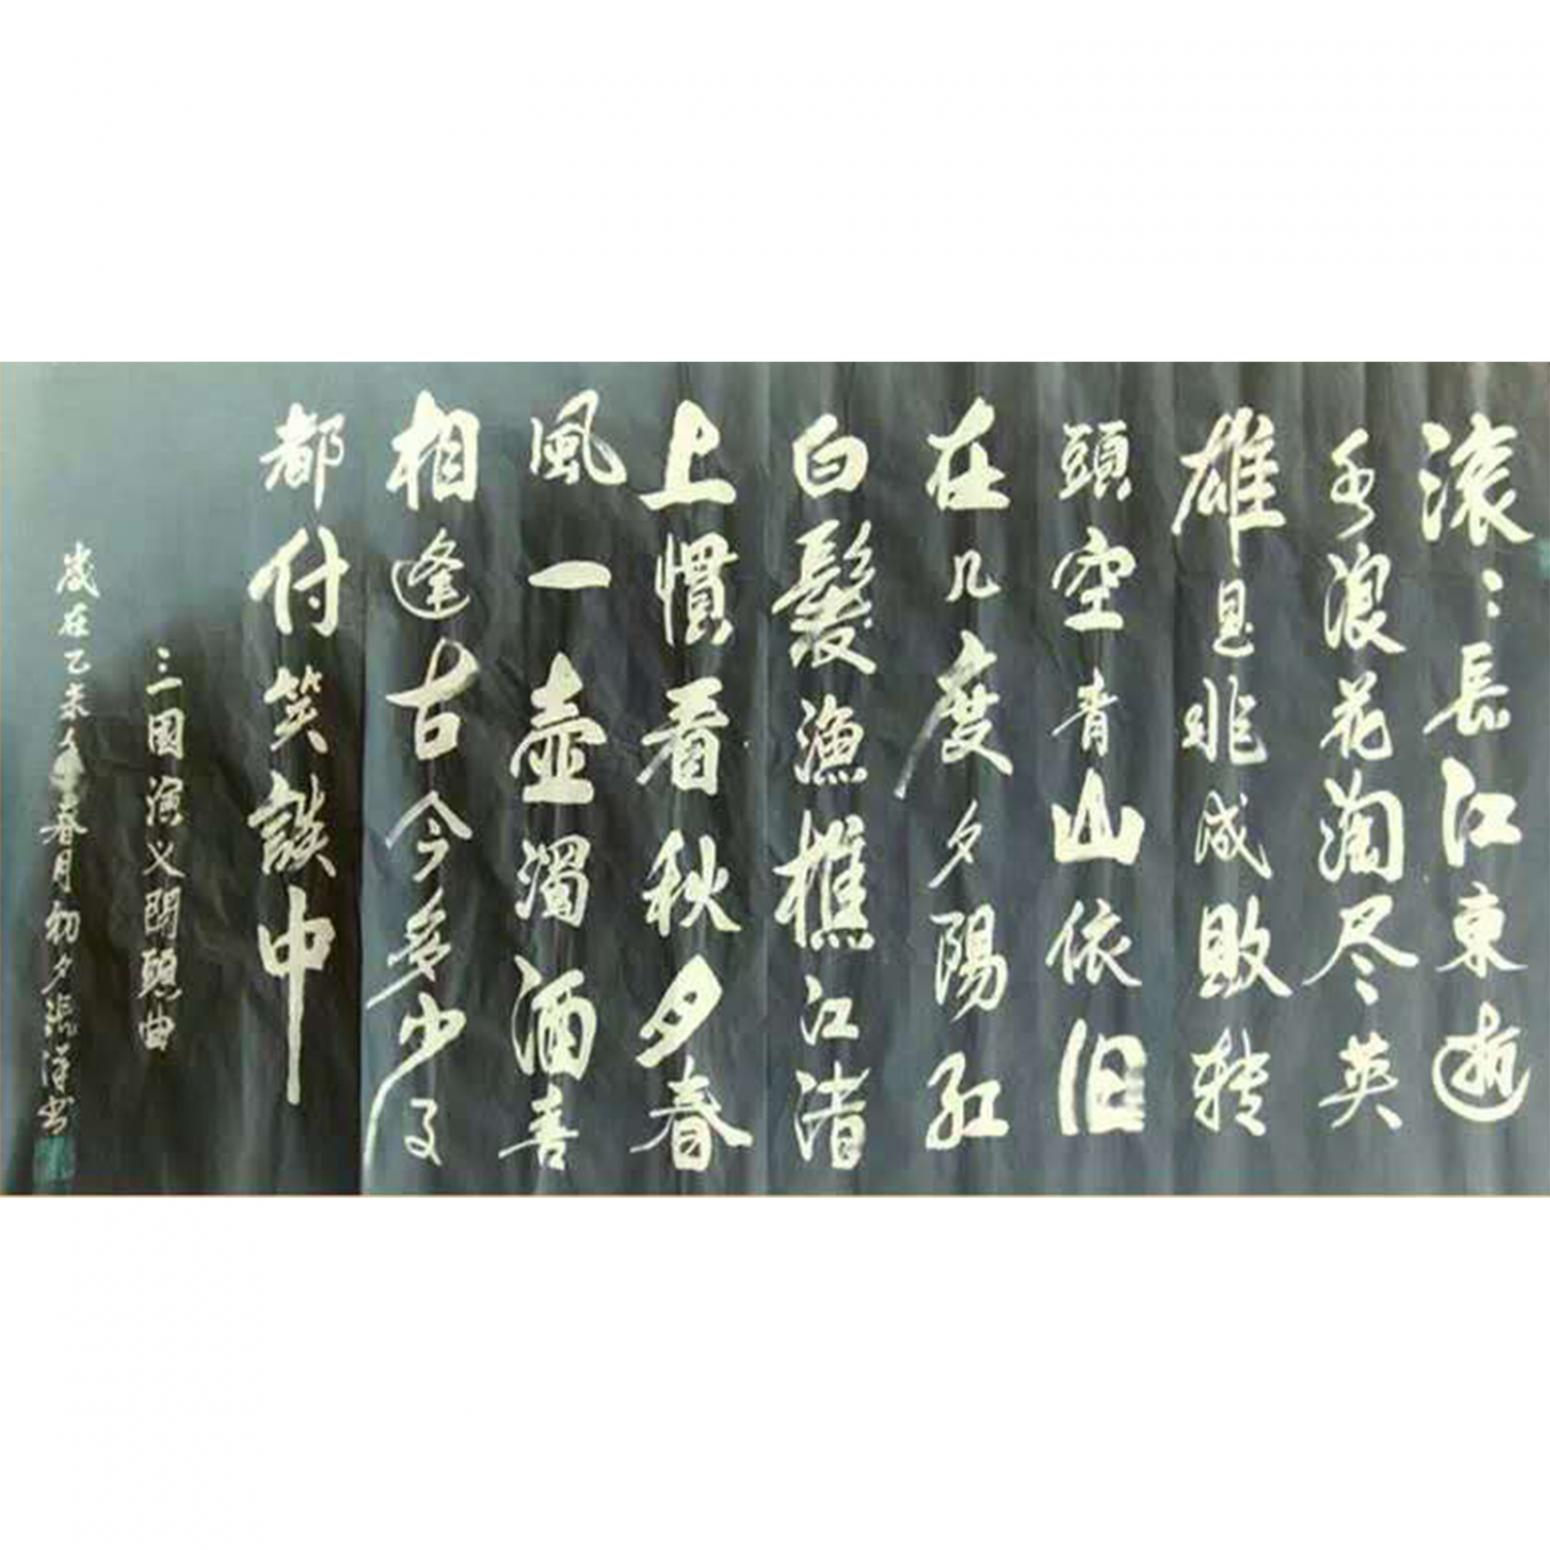 滚〻長江東逝
水浪花淘尽英
雄是非成敗转
頭空青山依旧
在几度夕陽红
白髮漁樵江渚
上慣看秋月春
風一壺濁酒喜
相逢古今多少事
都付笑談中
三國演义開頭曲
歲在乙未春月初夕書